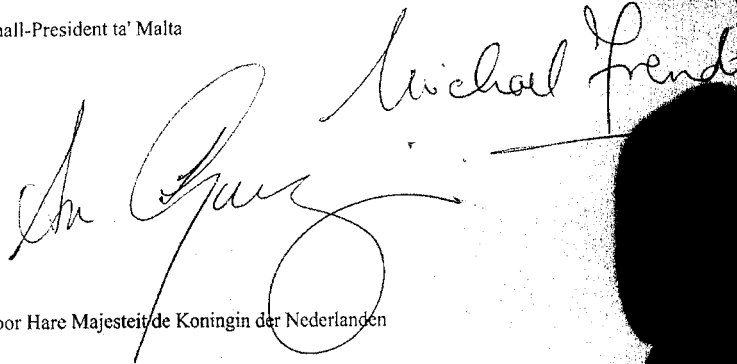 all-President ta' Malta
Michael Frend
oor Hare Majesteit de Koningin der Nederlanden